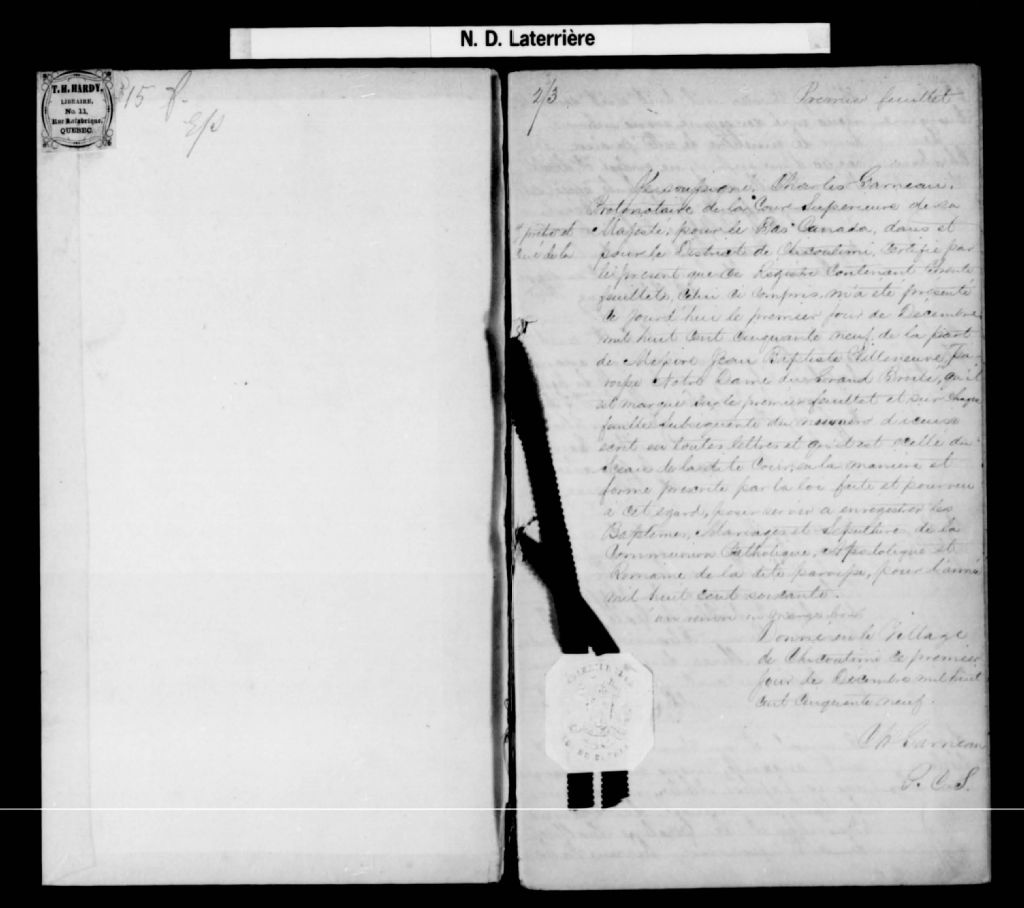 N. D. Laterrière
T. H. HARDY,
LIBRAIRE,
No. 11,
QUEBEC.
15
2/3
Premier feuillet
Je soussigné, Charles Garneau,
Protonotaire de la Cour Superieure de sa
Majesté, pour le Bas Canada, dans et
pour le District de Chicoutimi, certifie par
le present que ce Registre contenant
feuillets, celui ci compris, m'a été presenté
ce jourd'hui le premier jour de Decembre
mil huit cent cinquante neuf, de la part
de Messire Jean Baptiste Villeneuve,
Notre Dame du Grand Brulé, qu'il
est marqué sur le premier feuillet et sur chaque
feuillet subsequente du numéro d'iceux
ecrit en toutes lettres et qu'il est scellé du
Sceau de la dite Cour, en la manière et
forme prescrite par la loi faite et pourvu
à cet egard, pour servir a enregistrer les
Baptemes, Mariages et Sepultures de la
Communion Catholique, Apostolique et
Romaine de la dite paroisse, pour l'année
mil huit cent soixante.
Donné en le Village
de Chicoutimi ce premier
jour de Décembre mil huit
cent cinquante neuf.
Ch Garneau
P. C. S.